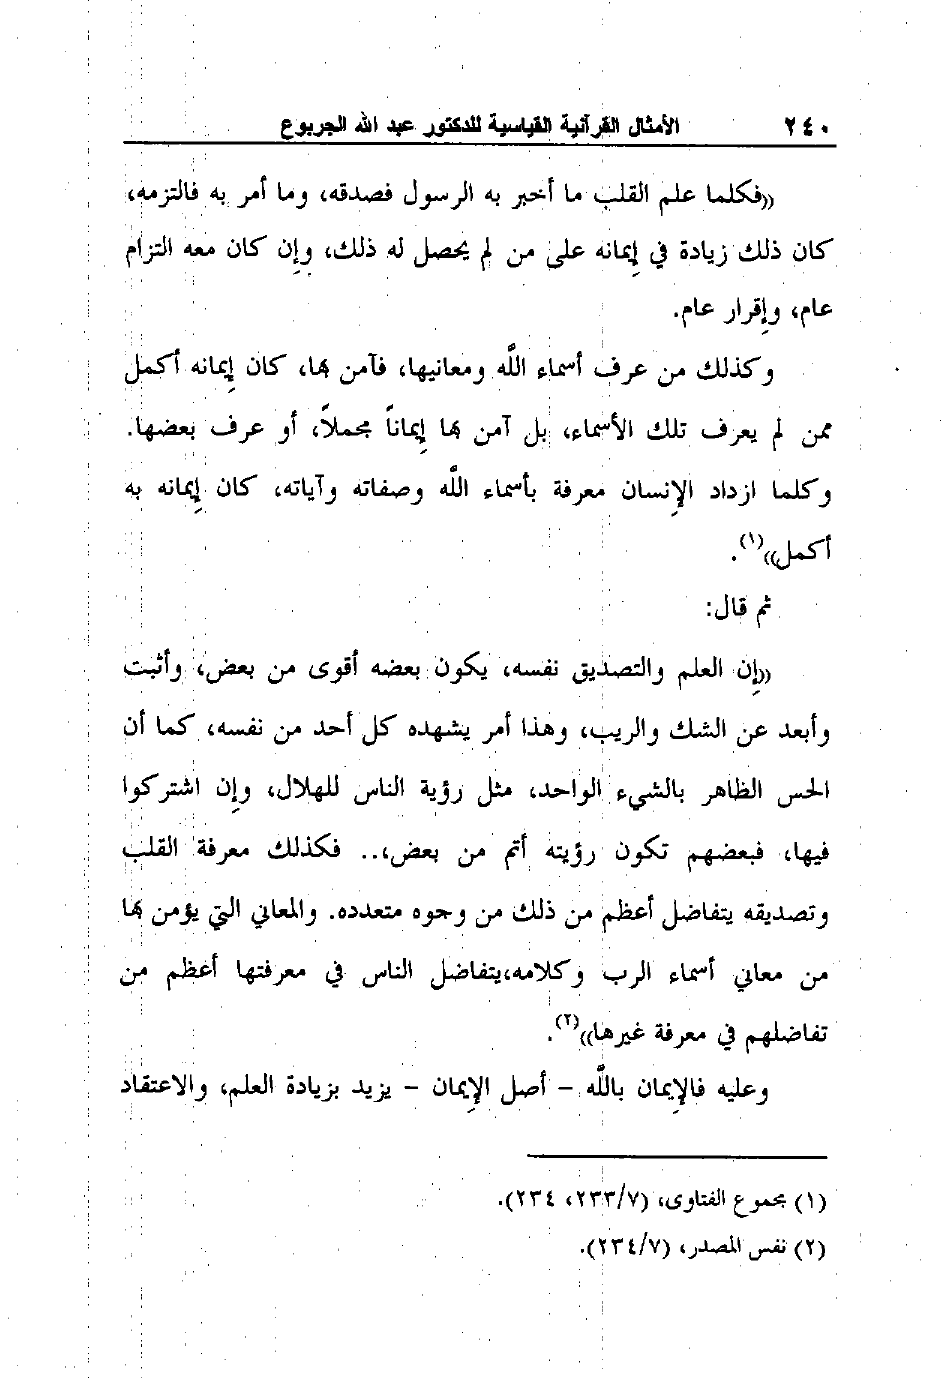 ٢٤٠ الأمثال القرآنية القياسية للدكتور عبد الله الجربوع
((فكلما علم القلب ما أخبر به الرسول فصدقه، وما أمر به فالتزمه،
كان ذلك زيادة في إِيمانه على من لم يحصل له ذلك، وإِن كان معه التزام
عام، وإِقرار عام.
وكذلك من عرف أسماء اللَّه ومعانيها، فآمن بها، كان إِيمانه أكمل
ممن لم يعرف تلك الأسماء، بل آمن بها إِيماناً مجملاً، أو عرف بعضها.
وكلما ازداد الإِنسان معرفة بأسماء اللَّه وصفاته وآياته، كان إِيمانه به
أكمل))(١).
ثم قال:
((إِن العلم والتصديق نفسه، يكون بعضه أقوى من بعض، وأثبت
وأبعد عن الشك والريب، وهذا أمر يشهده كل أحد من نفسه، كما أن
الحس الظاهر بالشيء الواحد، مثل رؤية الناس للهلال، وإِن اشتركوا
فيها، فبعضهم تكون رؤيته أتم من بعض،.. فكذلك معرفة القلب
وتصديقه يتفاضل أعظم من ذلك من وجوه متعدده. والمعاني التي يؤمن بها
من معاني أسماء الرب وكلامه،يتفاضل الناس في معرفتها أعظم من
تفاضلهم في معرفة غيرها))(٢).
وعليه فالإِيمان باللَّه - أصل الإِيمان - يزيد بزيادة العلم، والاعتقاد
(١) مجموع الفتاوى، (٢٣٣/٧، ٢٣٤).
(٢) نفس المصدر، (٢٣٤/٧).